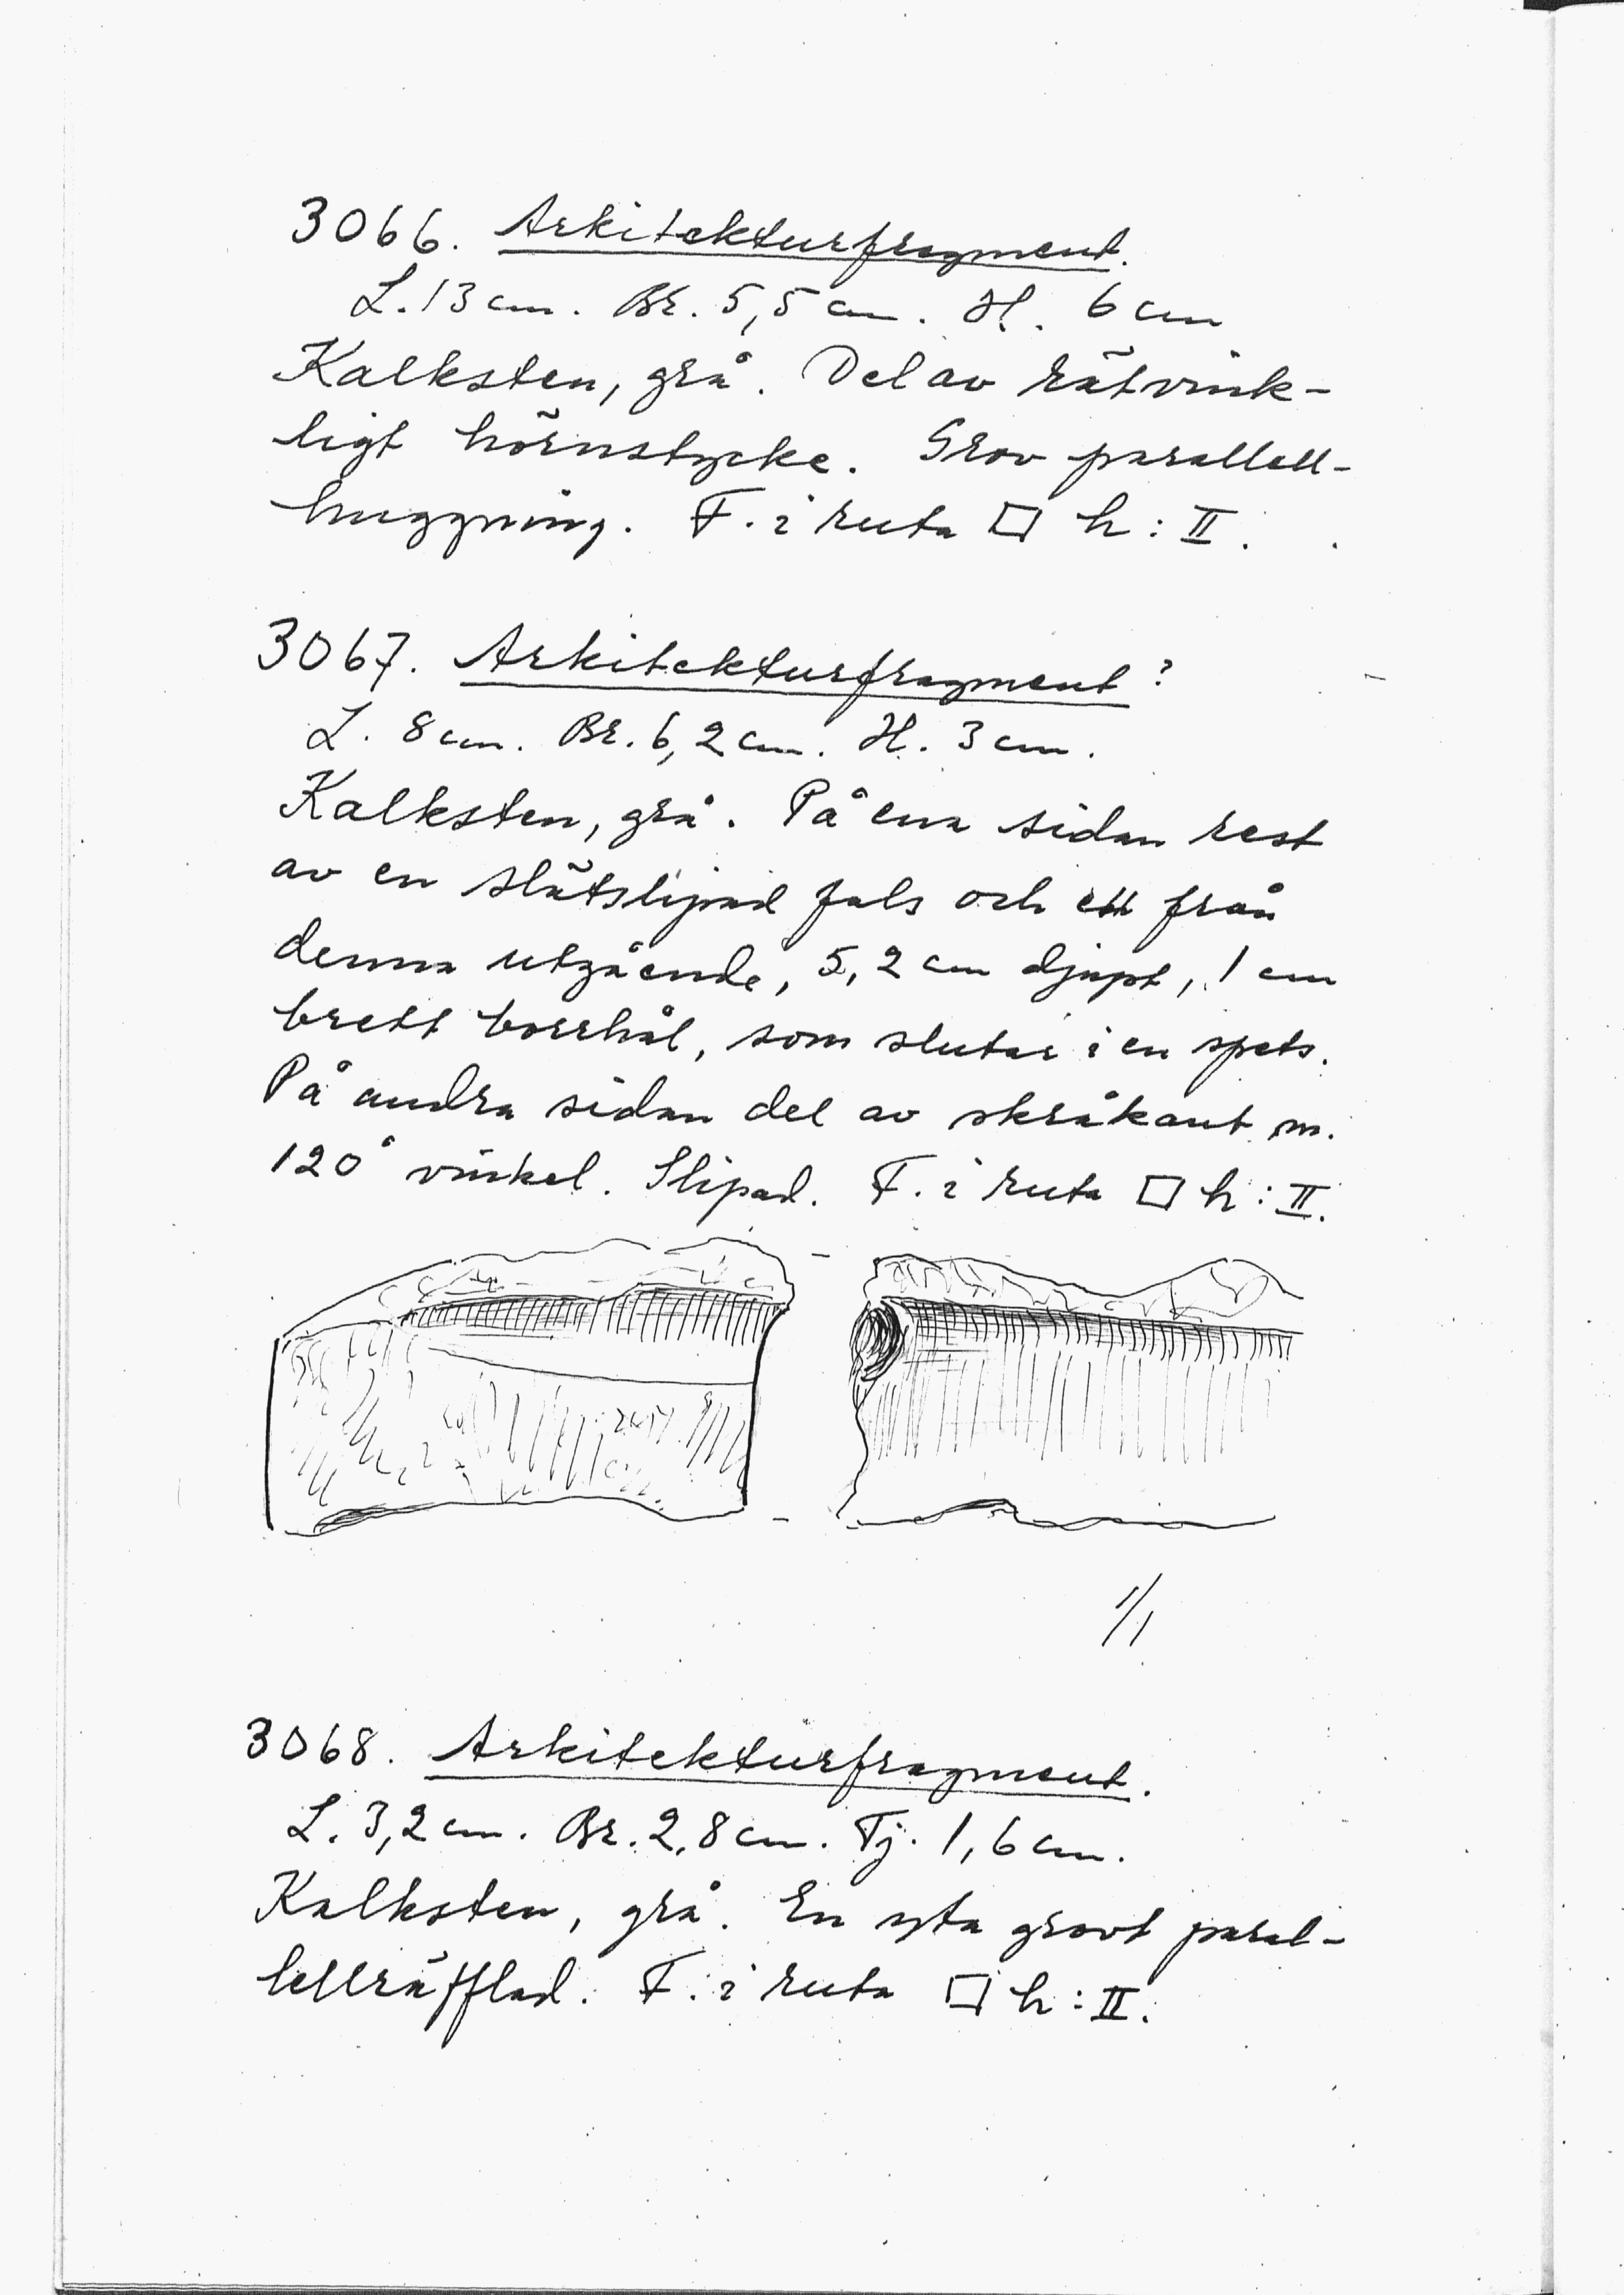 3066. Arkitekturfragment.
L. 13 cm. Br. 5,5 cm. H. 6 cm
Kalksten, grå. Del av rätvink-
ligt hörnstycke. Grov parallell-
huggning. F. i ruta □ h : II.
3067. Arkitekturfragment ?
L. 8 cm. Br. 6,2 cm. H. 3 cm.
Kalksten, grå. På ena sidan rest
av en slätslipad fals och ett från
denna utgående, 5,2 cm djupt, 1 cm
brett borrhål, som slutar i en spets.
På andra sidan del av skråkant m.
120° vinkel. Slipad. F. i ruta □ h : II.
1/1
3068. Arkitekturfragment.
L. 3,2 cm. Br. 2,8 cm. Tj. 1,6 cm.
Kalksten, grå. En yta grovt paral-
lellräfflad. F. i ruta □ h : II.